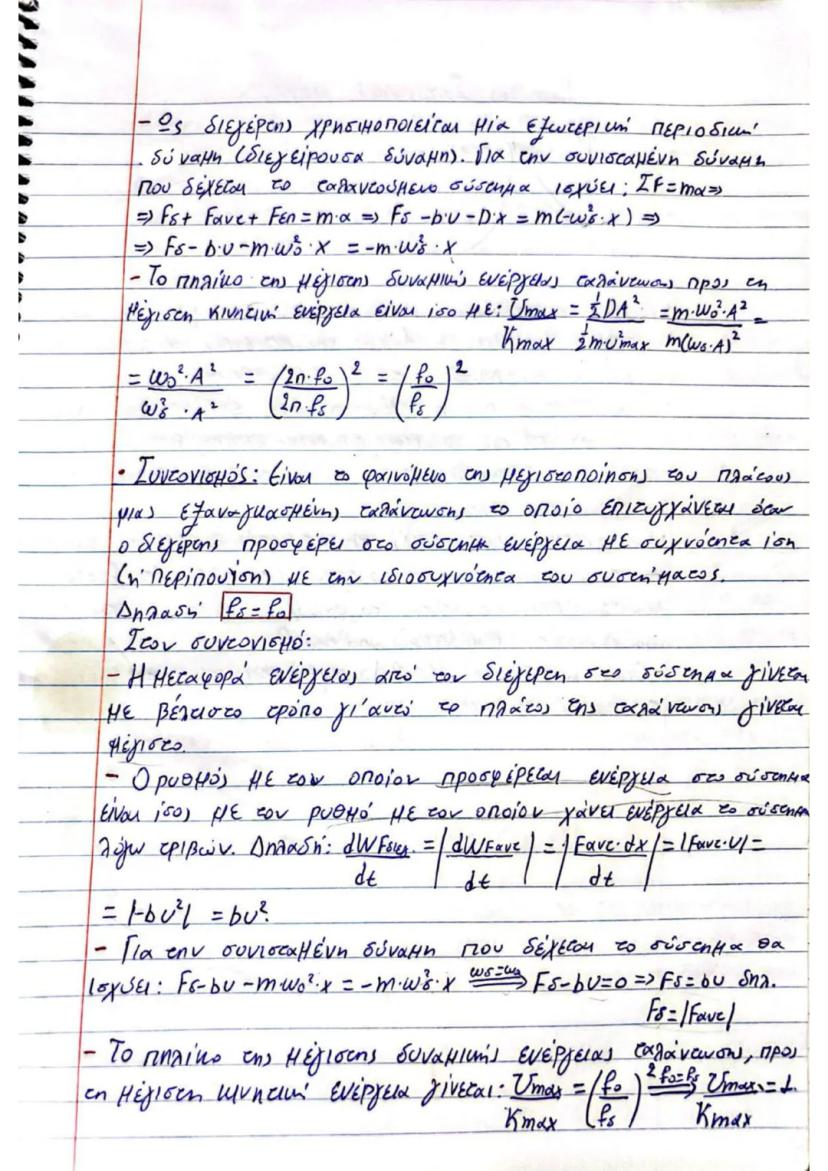 - Ως διεγέρτης χρησιμοποιείται μία εξωτερική περιοδική
δύναμη (διεγείρουσα δύναμη). Για την συνισταμένη δύναμη
που δέχεται το ταλαντούμενο σύστημα ισχύει: ΣF=mα⇒
⇒ Fδ+ Fαντ+ Fεπ=m·α ⇒ Fδ -b·υ-D·x = m(-ωδ²·x) ⇒
⇒ Fδ- b·υ-m·ω₀²·x = -m·ωδ²·x
- Το πηλίκο της μέγιστης δυναμικής ενέργειας ταλάντωσης προς τη
μέγιστη κινητική ενέργεια είναι ίσο με: Umax/Kmax = ½DA²/½mυ²max = m·ω₀²·A²/m(ωδ·A)² =
= ω₀²·A²/ωδ²·A² = (2π·f₀/2π·fδ)² = (f₀/fδ)²
• Συντονισμός: Είναι το φαινόμενο της μεγιστοποίησης του πλάτους
μιας εξαναγκασμένης ταλάντωσης το οποίο επιτυγχάνεται όταν
ο διεγέρτης προσφέρει στο σύστημα ενέργεια με συχνότητα ίση
(ή περίπου ίση) με την ιδιοσυχνότητα του συστήματος.
Δηλαδή fδ = f₀
Στον συντονισμό:
- Η μεταφορά ενέργειας από τον διεγέρτη στο σύστημα γίνεται
με βέλτιστο τρόπο γι'αυτό το πλάτος της ταλάντωσης γίνεται
μέγιστο.
- Ο ρυθμός με τον οποίον προσφέρεται ενέργεια στο σύστημα
είναι ίσος με τον ρυθμό με τον οποίον χάνει ενέργεια το σύστημα
λόγω τριβών. Δηλαδή: dWFδιεγ/dt = |dWFαντ/dt| = |Fαντ·dx/dt| = |Fαντ·υ| =
= |-bυ²| = bυ².
- Για την συνισταμένη δύναμη που δέχεται το σύστημα θα
ισχύει: Fδ-bυ-mω₀²·x = -m·ωδ²·x ωδ=ω₀⇒ Fδ-bυ=0 ⇒ Fδ=bυ δηλ.
Fδ=|Fαντ|
- Το πηλίκο της μέγιστης δυναμικής ενέργειας ταλάντωσης, προς
τη μέγιστη κινητική ενέργεια γίνεται: Umax/Kmax = (f₀/fδ)² f₀=fδ⇒ Umax/Kmax = 1.